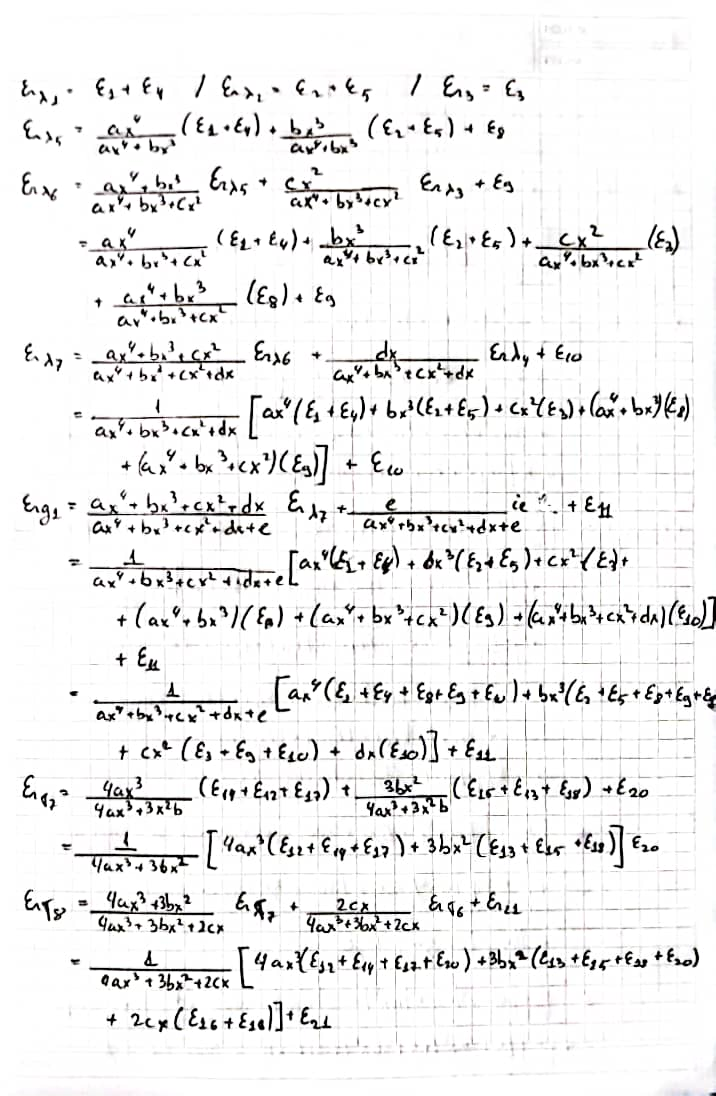 Erλ₁ = ε₁ + ε₄ / Erλ₂ = ε₂ + ε₅ / Er₃ = ε₃
Erλ₅ = ax⁴/(ax⁴+bx³) (ε₁+ε₄) + bx³/(ax⁴+bx³) (ε₂+ε₅) + ε₈
Erλ₆ = (ax⁴+bx³)/(ax⁴+bx³+cx²) Erλ₅ + cx²/(ax⁴+bx³+cx²) Erλ₃ + ε₉
= ax⁴/(ax⁴+bx³+cx²) (ε₁+ε₄) + bx³/(ax⁴+bx³+cx²) (ε₂+ε₅) + cx²/(ax⁴+bx³+cx²) (ε₃)
+ (ax⁴+bx³)/(ax⁴+bx³+cx²) (ε₈) + ε₉
Erλ₇ = (ax⁴+bx³+cx²)/(ax⁴+bx³+cx²+dx) Erλ₆ + dx/(ax⁴+bx³+cx²+dx) Erλ₄ + ε₁₀
= 1/(ax⁴+bx³+cx²+dx) [ax⁴(ε₁+ε₄) + bx³(ε₂+ε₅) + cx²(ε₃) + (ax⁴+bx³)(ε₈)
+ (ax⁴+bx³+cx²)(ε₉)] + ε₁₀
Erg₁ = (ax⁴+bx³+cx²+dx)/(ax⁴+bx³+cx²+dx+e) Erλ₇ + e/(ax⁴+bx³+cx²+dx+e) + ε₁₁
= 1/(ax⁴+bx³+cx²+dx+e) [ax⁴(ε₁+ε₄) + bx³(ε₂+ε₅) + cx²(ε₃) +
+ (ax⁴+bx³)(ε₈) + (ax⁴+bx³+cx²)(ε₉) + (ax⁴+bx³+cx²+dx)(ε₁₀)]
+ ε₁₁
= 1/(ax⁴+bx³+cx²+dx+e) [ax⁴(ε₁+ε₄+ε₈+ε₉+ε₁₀) + bx³(ε₂+ε₅+ε₈+ε₉+
+ cx²(ε₃+ε₉+ε₁₀) + dx(ε₁₀)] + ε₁₁
Erq₇ = 4ax³/(4ax³+3x²b) (ε₁₄+ε₁₂+ε₁₇) + 3bx²/(4ax³+3x²b) (ε₁₅+ε₁₃+ε₁₈) + ε₂₀
= 1/(4ax³+3bx²) [4ax³(ε₁₂+ε₁₄+ε₁₇) + 3bx²(ε₁₃+ε₁₅+ε₁₈)] ε₂₀
Erq₈ = (4ax³+3bx²)/(4ax³+3bx²+2cx) Erq₇ + 2cx/(4ax³+3bx²+2cx) Erq₆ + ε₂₁
= 1/(4ax³+3bx²+2cx) [4ax³(ε₁₂+ε₁₄+ε₁₇+ε₂₀) + 3bx²(ε₁₃+ε₁₅+ε₁₈+ε₂₀)
+ 2cx(ε₁₆+ε₁₈)] + ε₂₁